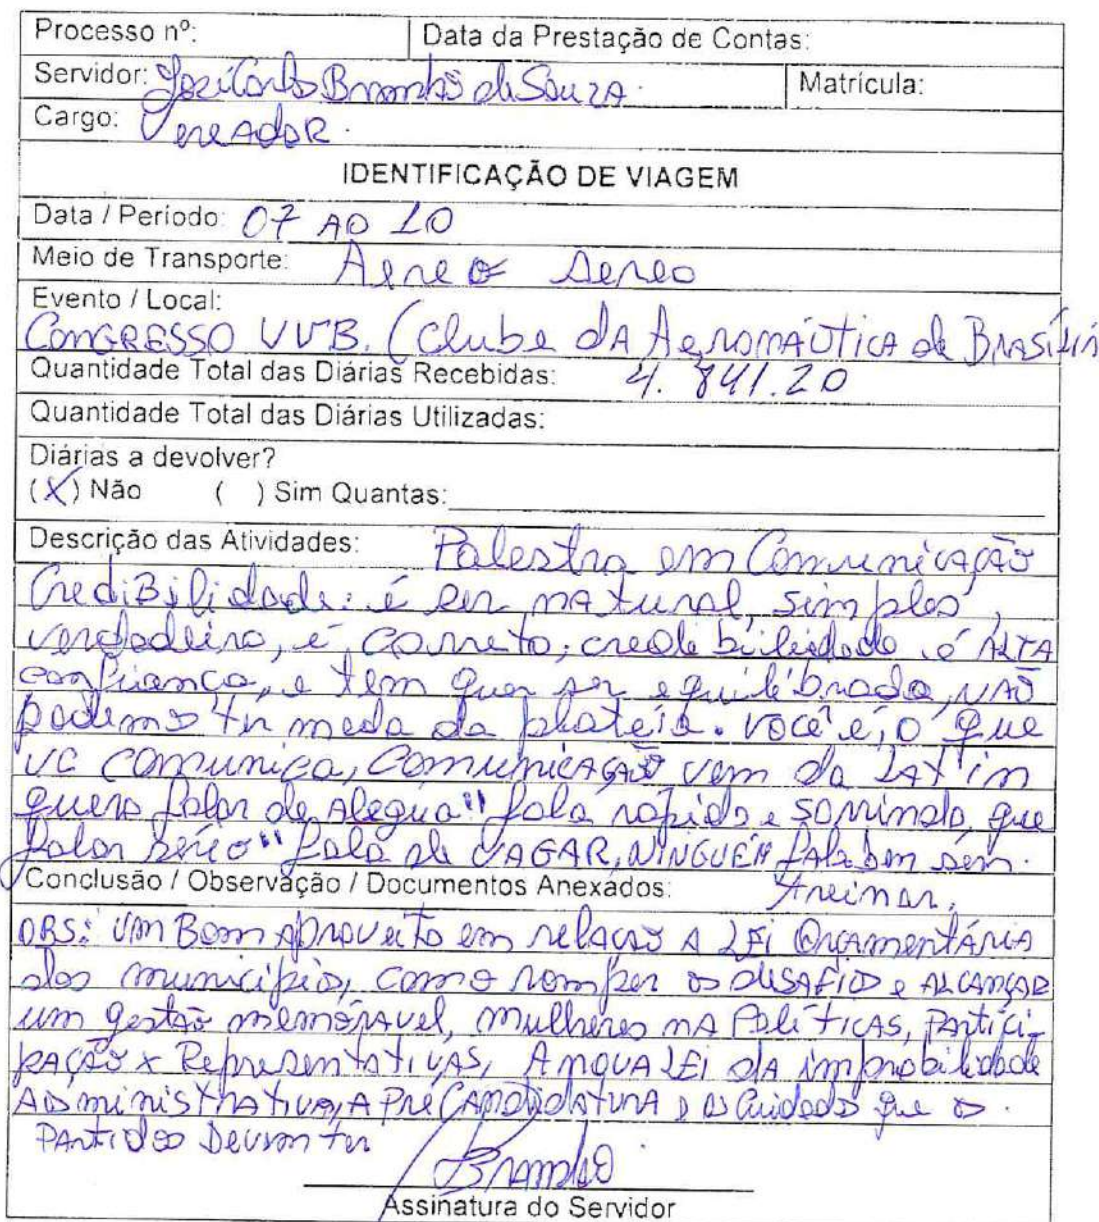 Processo nº: Data da Prestação de Contas:
Servidor: José Carlos Brandão de Souza. Matrícula:
Cargo: Vereador.
IDENTIFICAÇÃO DE VIAGEM
Data / Período: 07 AO 10
Meio de Transporte: Aereo Aereo
Evento / Local:
CONGRESSO UVB. (Clube dA AeronáuticA de BrasíliA
Quantidade Total das Diárias Recebidas: 4.841.20
Quantidade Total das Diárias Utilizadas:
Diárias a devolver?
(X) Não ( ) Sim Quantas:
Descrição das Atividades: Palestra em Comunicação
CrediBilidade: é ser natural, simples,
verdadeiro, é correto; credebilidade é ALTA
confiança, e tem quer ser equilibrado, NÃO
podemos ter medo da plateia. você é, o que
vc comunica, comunicação vem do Latim
quero falar de alegria" fala rapido e sorrindo, que
falar sério" fala de VAGAR, NINGUÉM fala bem sem
Conclusão / Observação / Documentos Anexados: treinar.
OBS: Um Bom Aproveito em relação A LEi OrçamentáriA
dos municípios, como romper os desAFiO e ALCANÇAR
um gestão memorável, mulheres nA PolíticAS, Partici-
pação x RepresentativAS, A novA LEi dA improbilidade
AdministrativA, A Pré CAndidAturA e os Cuidado que os
Partidos Devem ter
Brandão
Assinatura do Servidor